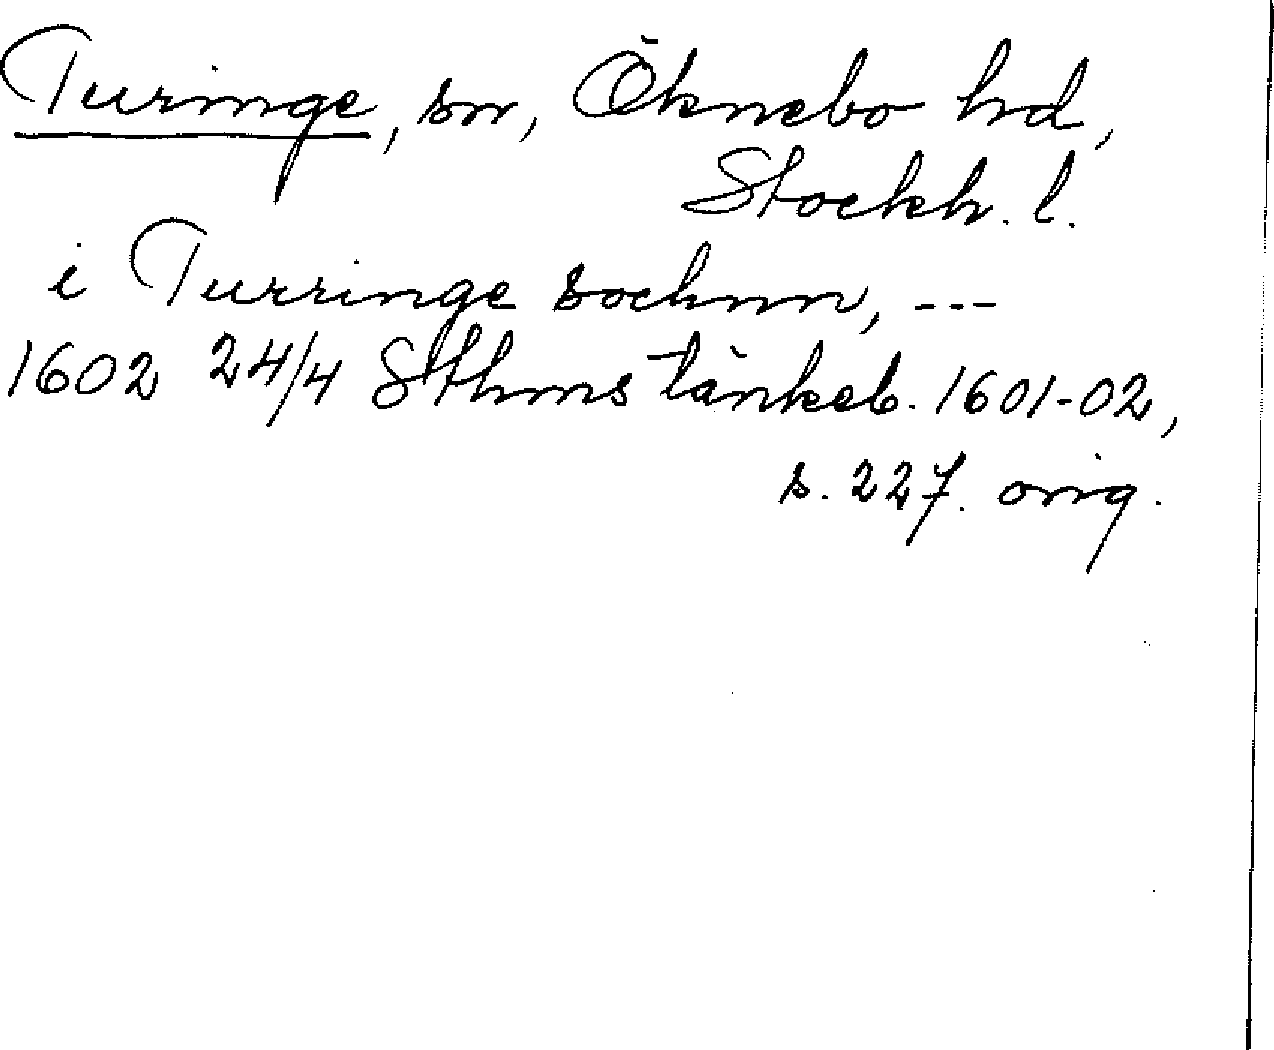 Turinge, sn, Öknebo hd,
Stockh. l.
i Turringe sochnn, ---
1602 24/4 Sthms tänkeb. 1601-02,
s. 227. orig.